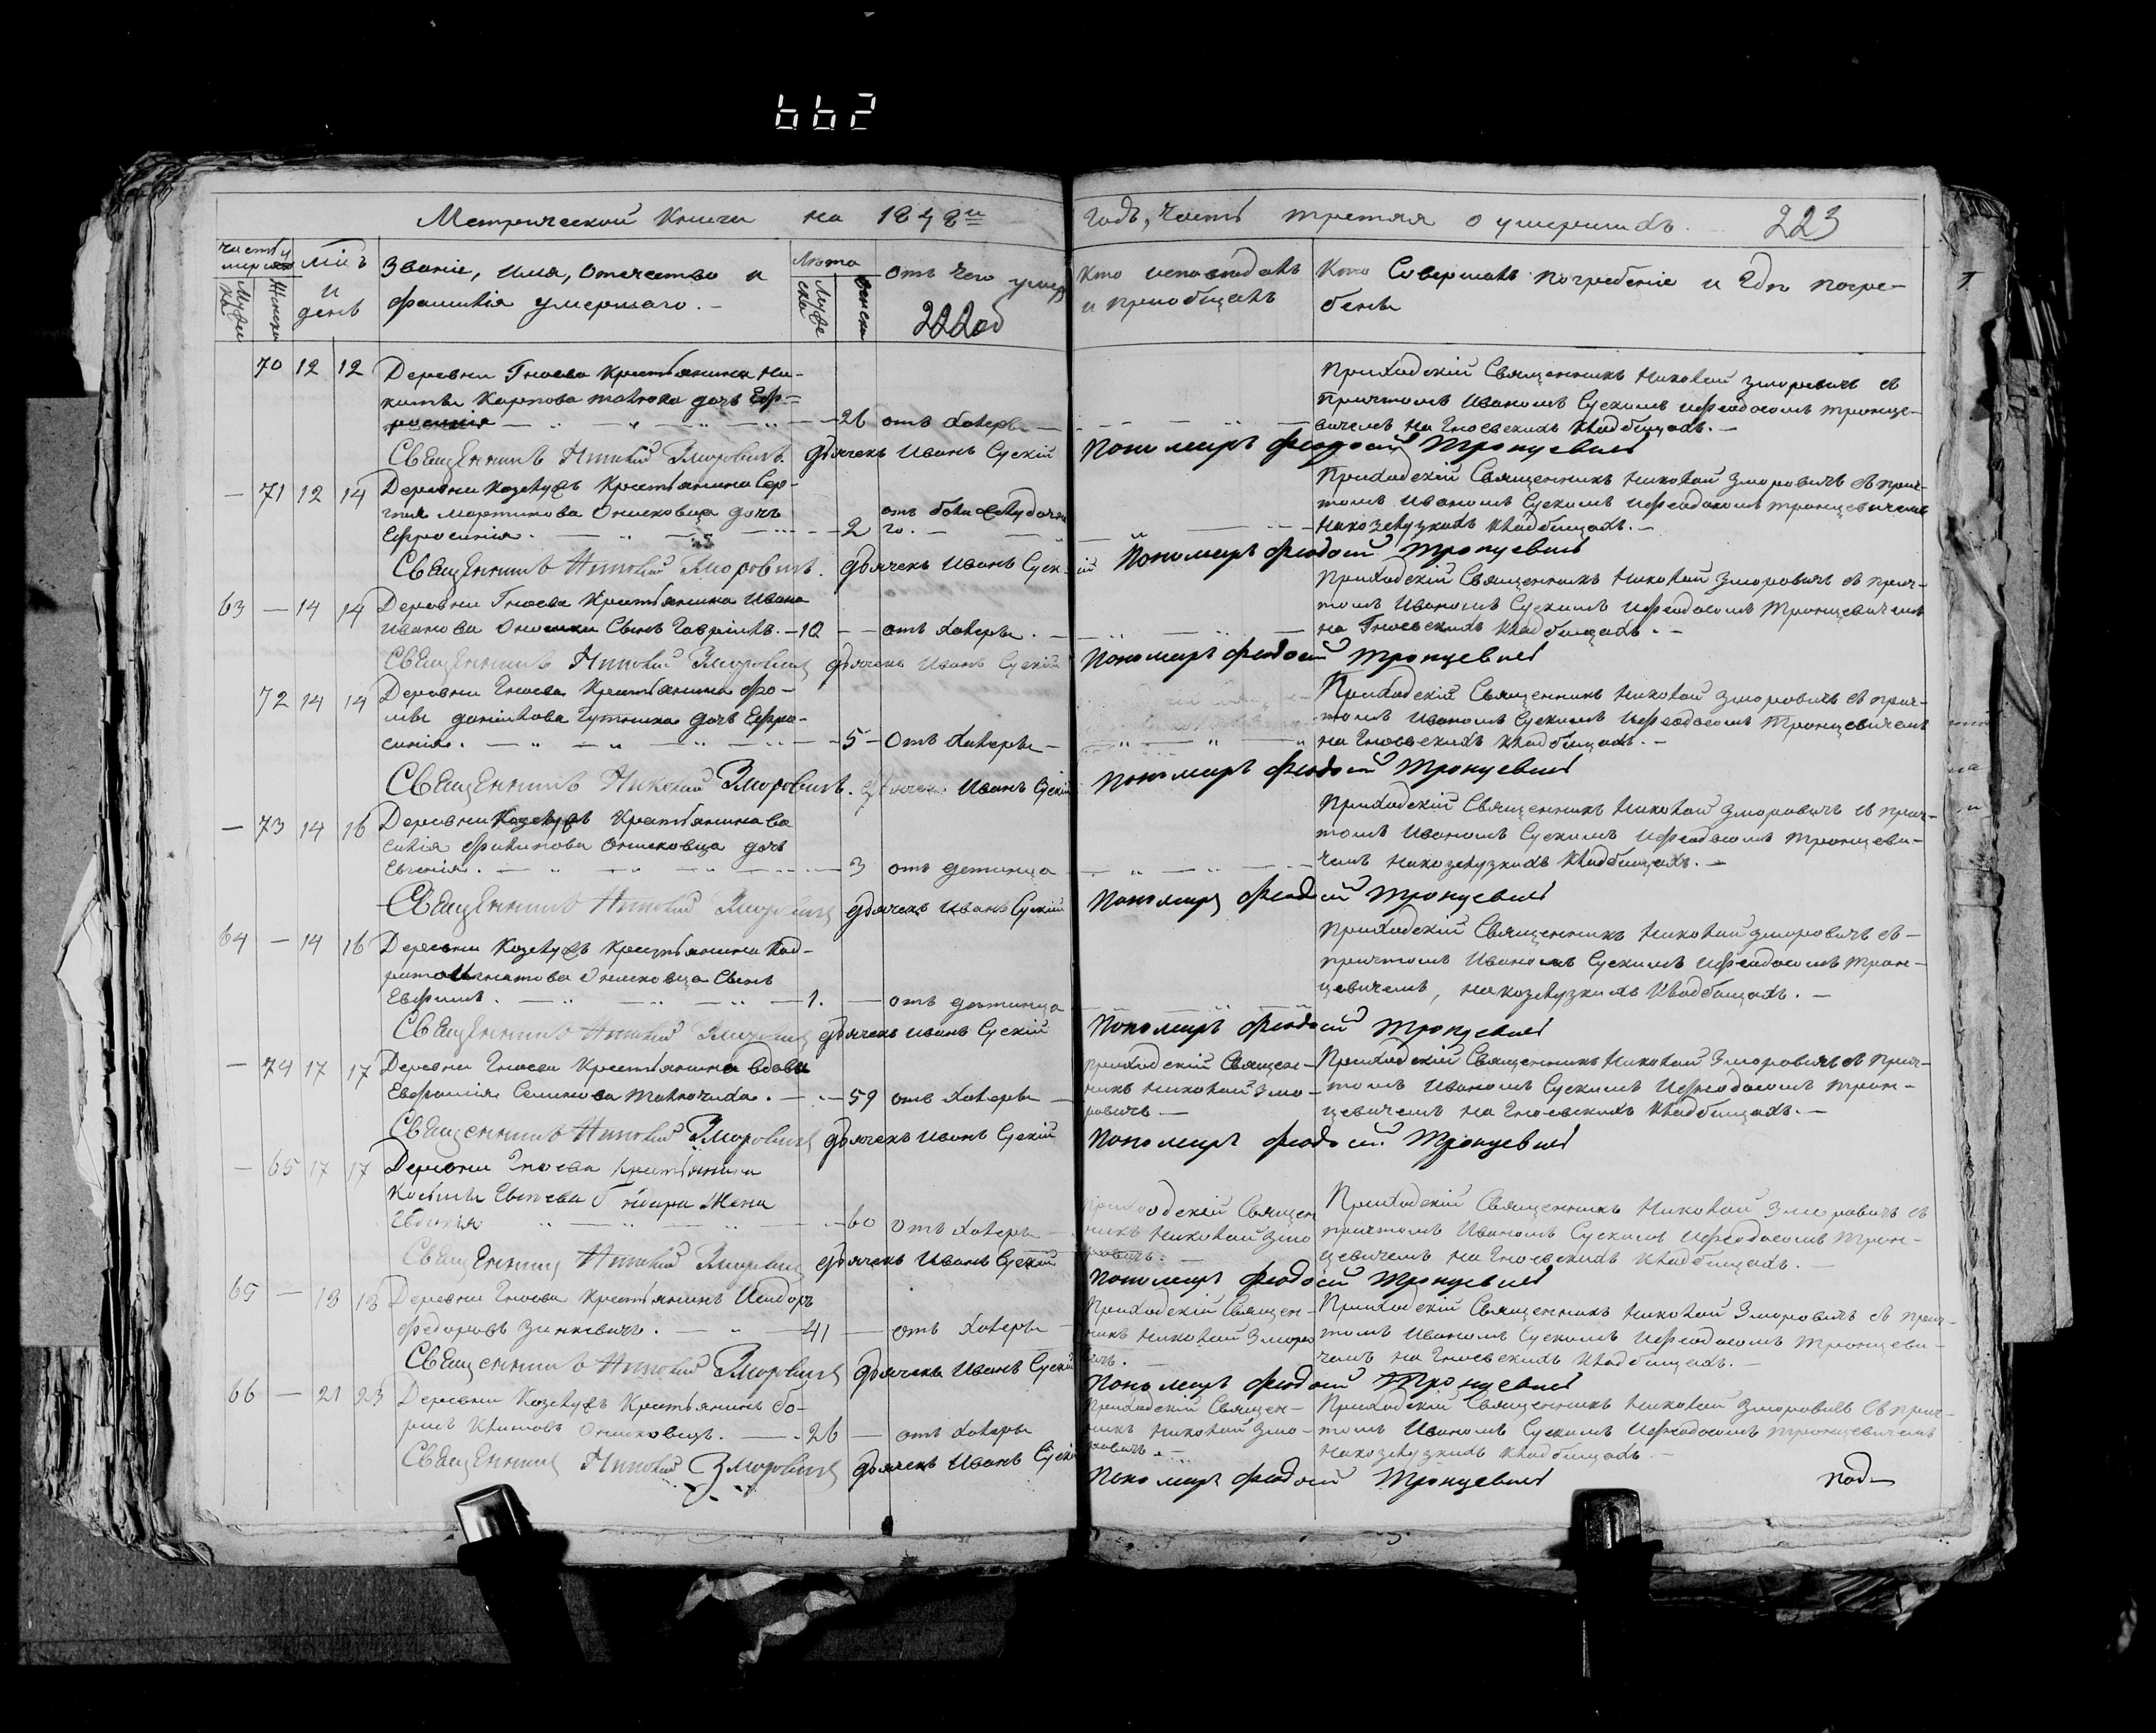 662
Метрической Книги на 1848й
годъ, часть третяя о умершихъ. 223
Мужеска
Женска
и
день
Званіе, имя, отечество и
фамилія умершаго. -
Лѣта
от чего умер
222об
Кто исповѣдалъ
и приобщалъ
Кто Совершалъ погребеніе и гдѣ погре-
бенъ
70 12 12 Деревни Гноева Крестьянина Ни-
киты Карпова дочь Евф-
росинія 26 отъ Холеры
Приходскій Священникъ Николай Зморовичъ съ
Причтомъ Иваномъ Сускимъ и Феодосомъ Тронце-
вичемъ на Гноевскихъ Кладбищахъ. -
Священникъ Николай Зморовичъ. дьячекъ Иванъ Сускій Пономарь Феодосій Тронцевичъ
— 71 12 14 Деревни Козлужъ Крестьянина Сер-
гія Мартинова Онисковца дочь
Ефросинія. 2
Приходскій Священникъ Николай Зморовичъ съ прич-
томъ Иваномъ Сускимъ и Феодосомъ Тронцевичемъ
на Кладбищахъ. -
Священникъ Николай Зморовичъ. дьячекъ Иванъ Суск-ій Пономарь Феодосій Тронцевичъ
63 — 14 14 Деревни Гноева Крестьянина Ивана
Иванова Сынъ Гавріилъ. - 10 - - отъ Холеры. -
Приходскій Священникъ Николай Зморовичъ съ прич-
томъ Иваномъ Сускимъ и Феодосомъ Тронцевичемъ
на Гноевскихъ Кладбищахъ. -
Священникъ Николай Зморовичъ дьячекъ Иванъ Сускій Пономарь Феодосій Тронцевичъ
72 14 14 Деревни Гноева Крестьянина Фо-
мы Данилова дочь Ефро-
синія. 5 - Отъ Холеры -
Приходскій Священникъ Николай Зморовичъ съ прич-
томъ Иваномъ Сускимъ и Феодосомъ Тронцевичемъ
на Гноевскихъ Кладбищахъ. -
Священникъ Николай Зморовичъ. дьячекъ Иванъ Сускій Пономарь Феодосій Тронцевичъ
— 73 14 16 Деревни Козлужъ Крестьянина Ва
силія Филипова Онисковца дочь
Евгенія. 3 отъ детинца
Приходскій Священникъ Николай Зморовичъ съ прич-
томъ Иваномъ Сускимъ и Феодосомъ Тронцеви-
чемъ на Кладбищахъ. -
Священникъ Николай Зморовичъ дьячекъ Иванъ Сускій Пономарь Феодосій Тронцевичъ
64 — 14 16 Деревни Козлужъ Крестьянина Код-
рата Игнатова Онисковца Сынъ
Евфимъ. 1. — отъ детинца
Приходскій Священникъ Николай Зморовичъ съ -
причтомъ Иваномъ Сускимъ и Феодосомъ Трон-
цевичемъ, на Кладбищахъ. -
Священникъ Николай Зморовичъ дьячекъ Иванъ Сускій Пономарь Феодосій Тронцевичъ
— 74 17 17 Деревни Гноева Крестьянина вдова
Евфимія Семинова. 59 отъ Холеры
приходскій Священ-
никъ Николай Змо-
ровичъ -
Приходскій Священникъ Николай Зморовичъ съ прич-
томъ Иваномъ Сускимъ и Феодосомъ Трон-
цевичемъ на Гноевскихъ Кладбищахъ. -
Священникъ Николай Зморовичъ дьячекъ Иванъ Сускій Пономарь Феодосій Тронцевичъ
— 65 17 17 Деревни Гноева Крестьянина
жена
60 Отъ Холеры
Приходскій Священ
никъ Николай Змо
ровичъ.
Приходскій Священникъ Николай Зморовичъ съ
причтомъ Иваномъ Сускимъ и Феодосомъ Трон-
цевичемъ на Гноевскихъ Кладбищахъ. -
Священникъ Николай Зморовичъ дьячекъ Иванъ Сускій Пономарь Феодосій Тронцевичъ
65 — 18 18 Деревни Гноева Крестьянинъ Исидоръ
Федоровъ Зинкевичъ. 41 — отъ Холеры
Приходскій Священ-
никъ Николай Зморо
вичъ.
Приходскій Священникъ Николай Зморовичъ съ прич-
томъ Иваномъ Сускимъ и Феодосомъ Тронцеви-
чемъ на Гноевскихъ Кладбищахъ. -
Священникъ Николай Зморовичъ дьячекъ Иванъ Сускій Пономарь Феодосій Тронцевичъ
66 — 21 23 Деревни Козлужъ Крестьянинъ Бо-
рисъ Онисковецъ. 26 — отъ Холеры
Приходскій Священ-
никъ Николай Змо-
ровичъ. -
Приходскій Священникъ Николай Зморовичъ съ прич-
томъ Иваномъ Сускимъ и Феодосомъ Тронцевичемъ
на Кладбищахъ
Священникъ Николай Зморовичъ дьячекъ Иванъ Сускій Пономарь Феодосій Тронцевичъ
под-